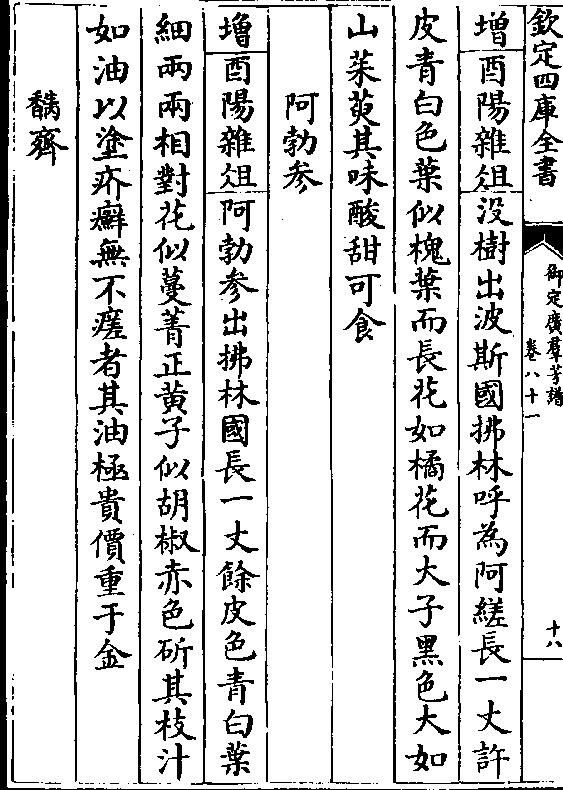 欽定四庫全書
御定廣羣芳譜
卷八十一
十八
增酉陽雜俎没樹出波斯國拂林呼為阿縒長一丈許
皮青白色葉似槐葉而長花如橘花而大子黑色大如
山茱萸其味酸甜可食
阿勃參
增酉陽雜俎阿勃參出拂林國長一丈餘皮色青白葉
細兩兩相對花似蔓菁正黄子似胡椒赤色斫其枝汁
如油以塗疥癬無不瘥者其油極貴價重于金
䭱齊